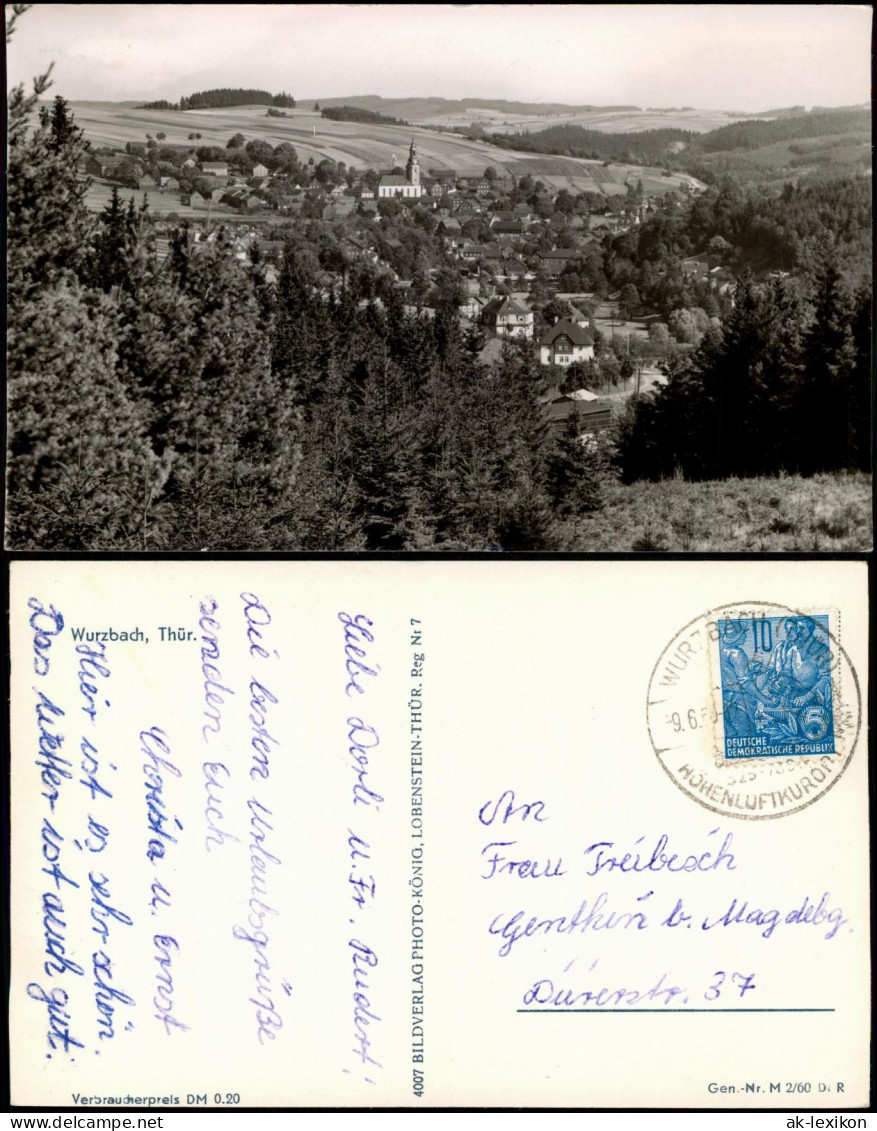 Wurzbach, Thür.
Liebe Dorli u. Fr. Rudert!
Die besten Urlaubsgrüße
senden Euch
Christa u. Ernst
Hier ist es sehr schön.
Das Wetter ist auch gut.
Verbraucherpreis DM 0.20
4007 BILDVERLAG PHOTO-KÖNIG, LOBENSTEIN-THÜR. Reg Nr 7
WURZBACH
9.6.60
HÖHENLUFTKURORT
10
5
DEUTSCHE
DEMOKRATISCHE REPUBLIK
An
Frau
Genthin b. Magdebg.
Dürerstr. 37
Gen.-Nr. M 2/60 D. R
ak-lexikon